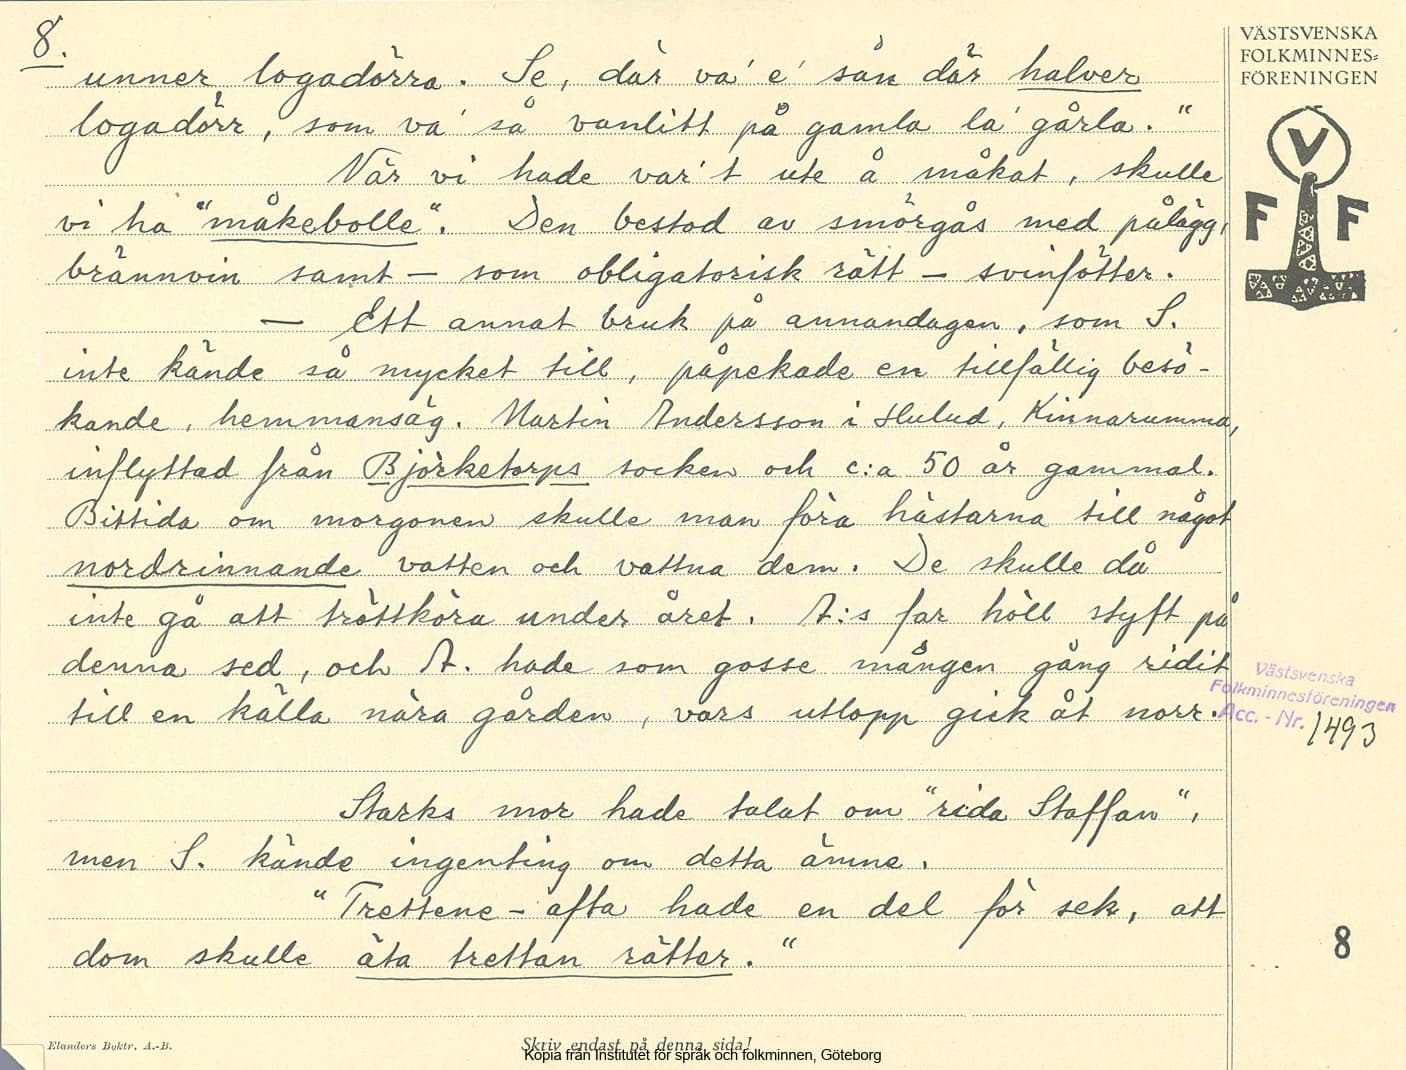 8.
VÄSTSVENSKA
FOLKMINNES=
FÖRENINGEN
V
F F
unner logadörra. Se, där va' e' sån där halver
logadörr, som va' så vanlitt på gamla la'gårla."
När vi hade var't ute å måkat, skulle
vi ha "måkebolle". Den bestod av smörgås med pålägg,
brännvin samt – som obligatorisk rätt – svinfötter.
– Ett annat bruk på annandagen, som S.
inte kände så mycket till, påpekade en tillfällig besö-
kande, hemmansäg. Martin Andersson i Hulud, Kinnarumma,
inflyttad från Björketorps socken och c:a 50 år gammal.
Bittida om morgonen skulle man föra hästarna till något
nordrinnande vatten och vattna dem. De skulle då
inte gå att tröttköra under året. A:s far höll styft på
denna sed, och A. hade som gosse mången gång ridit
till en källa nära gården, vars utlopp gick åt norr.
Västsvenska
Folkminnesföreningen
Acc. - Nr. 1493
Starks mor hade talat om "rida Staffan",
men S. kände ingenting om detta ämne.
"Trettene-afta hade en del för sek, att
dom skulle äta trettan rätter."
8
Elanders Boktr. A.-B.
Skriv endast på denna sida!
Kopia från Institutet för språk och folkminnen, Göteborg